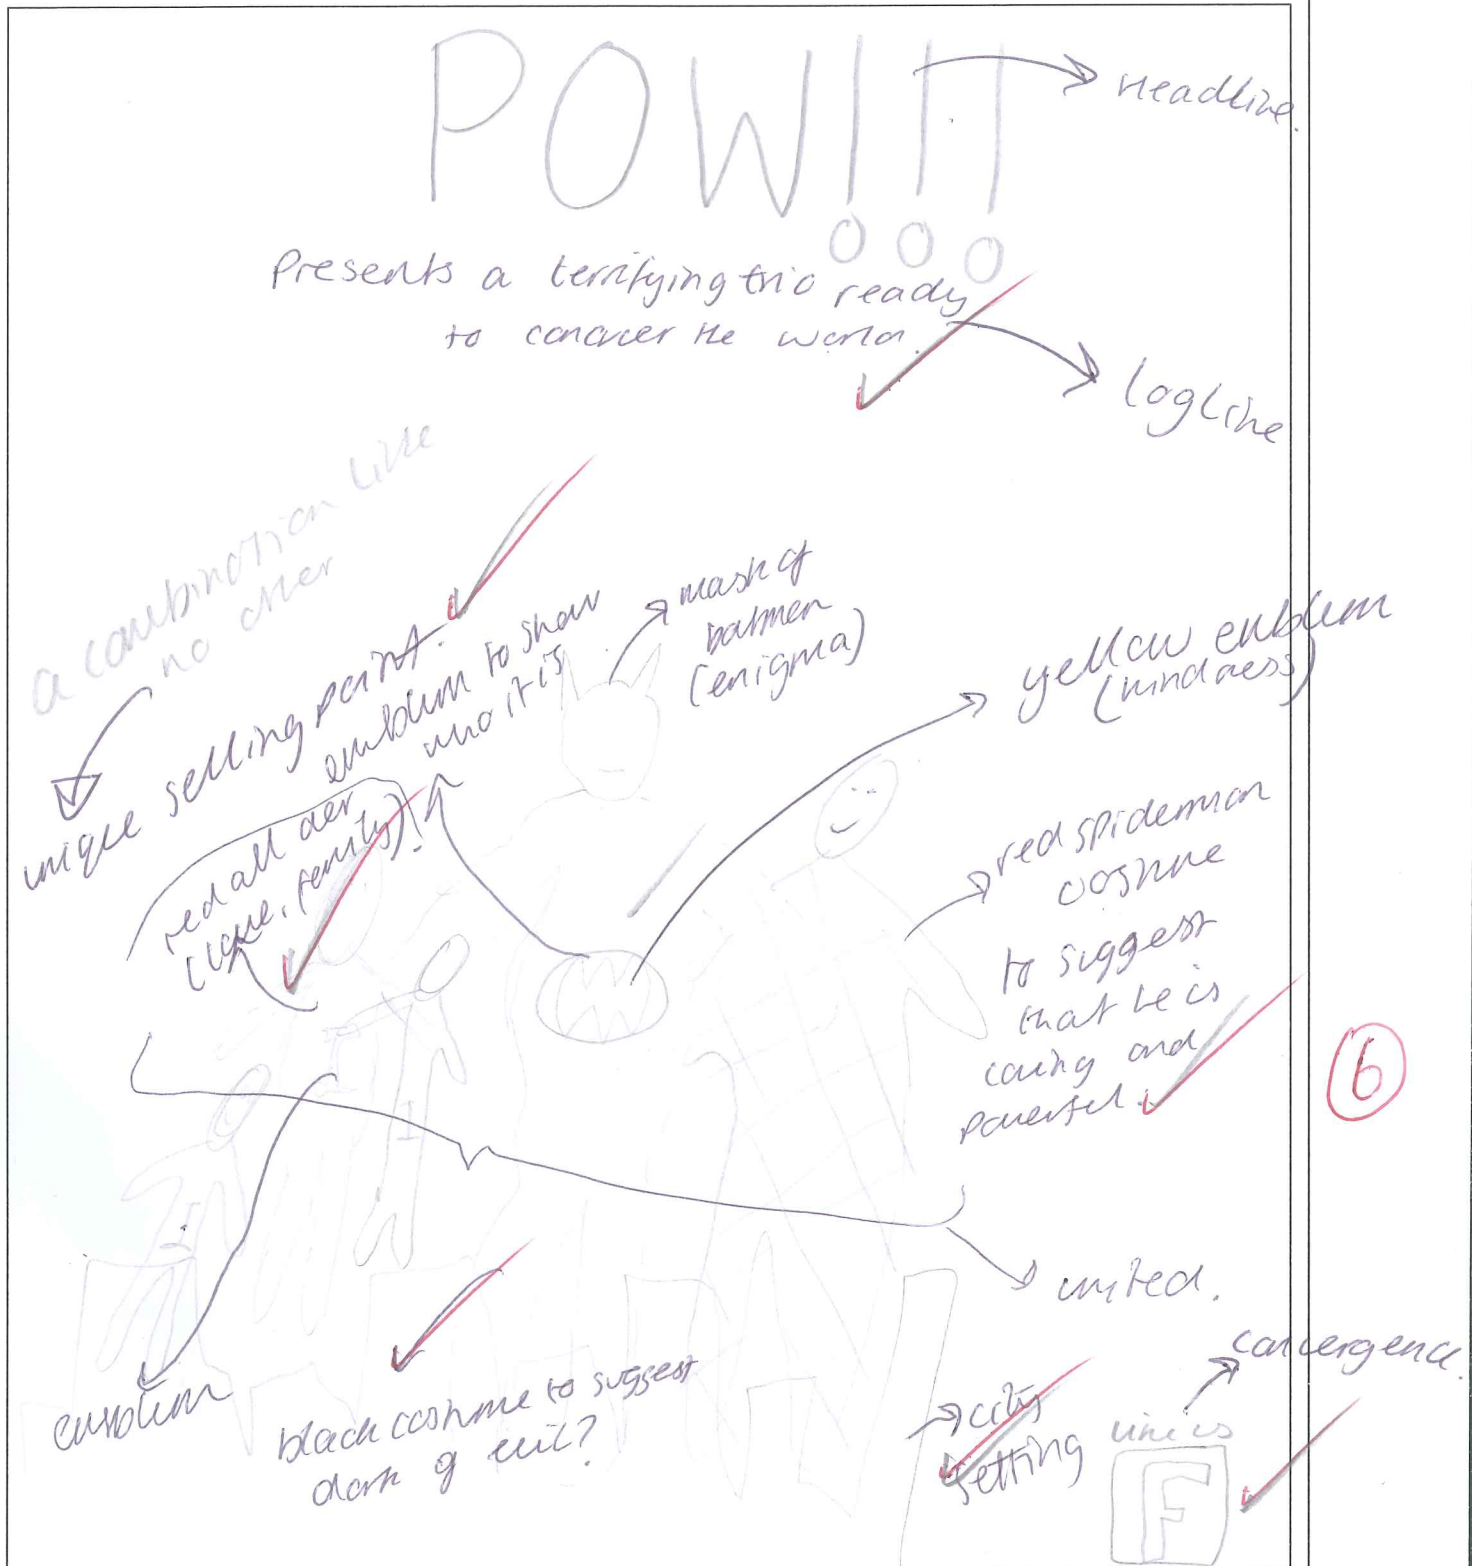 POW!!!
Headline.
Presents a terrifying trio ready
to conquer the world.
logline
a combination like
no other
unique selling point.
emblem to show
who it is
mask of
batman
(enigma)
yellow emblem
(kindness)
red all over
(love, family)
red spiderman
costume
to suggest
that he is
caring and
powerful.
6
united.
emblem
black costume to suggest
dark of evil?
city
setting
convergence.
like us
F
I
I